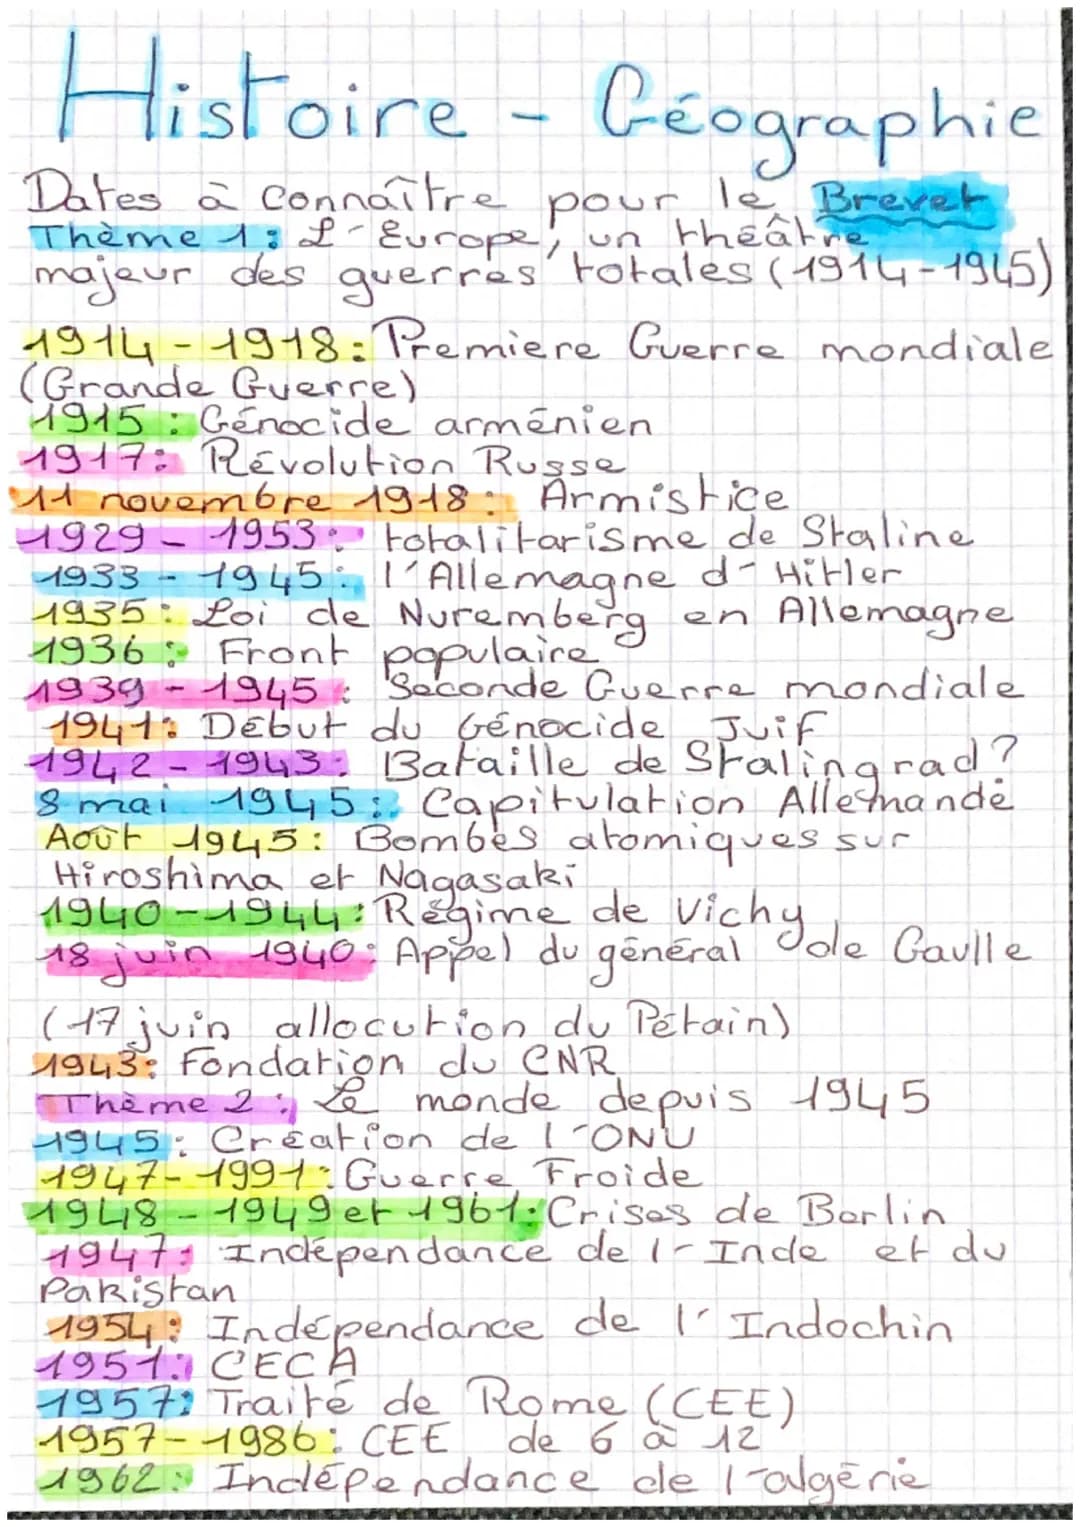 Histoire - Géographie
Dates à connaître pour le Brevet
Thème 1 : L'Europe, un théâtre
majeur des guerres totales (1914-1945)
1914 - 1918 : Premiere Guerre mondiale
(Grande Guerre)
1915 : Génocide arménien
1917 : Révolution Russe
11 novembre 1918 : Armistice
1929 - 1953 : totalitarisme de Staline
1933 - 1945 : l'Allemagne d'Hitler
1935 : Loi de Nuremberg en Allemagne
1936 : Front populaire
1939 - 1945 : Seconde Guerre mondiale
1941 : Début du Génocide Juif
1942 - 1943 : Bataille de Stalingrad ?
8 mai 1945 : Capitulation Allemande
Août 1945 : Bombes atomiques sur
Hiroshima et Nagasaki
1940 - 1944 : Régime de Vichy
18 juin 1940 : Appel du général de Gaulle
(17 juin allocution du Pétain)
1943 : Fondation du CNR
Thème 2 : Le monde depuis 1945
1945 : Création de l'ONU
1947 - 1991 : Guerre Froide
1948 - 1949 et 1961 : Crises de Berlin
1947 : Indépendance de l'Inde et du
Pakistan
1954 : Indépendance de l'Indochin
1951 : CECA
1957 : Traité de Rome (CEE)
1957 - 1986 : CEE de 6 à 12
1962 : Indépendance de l'algérie